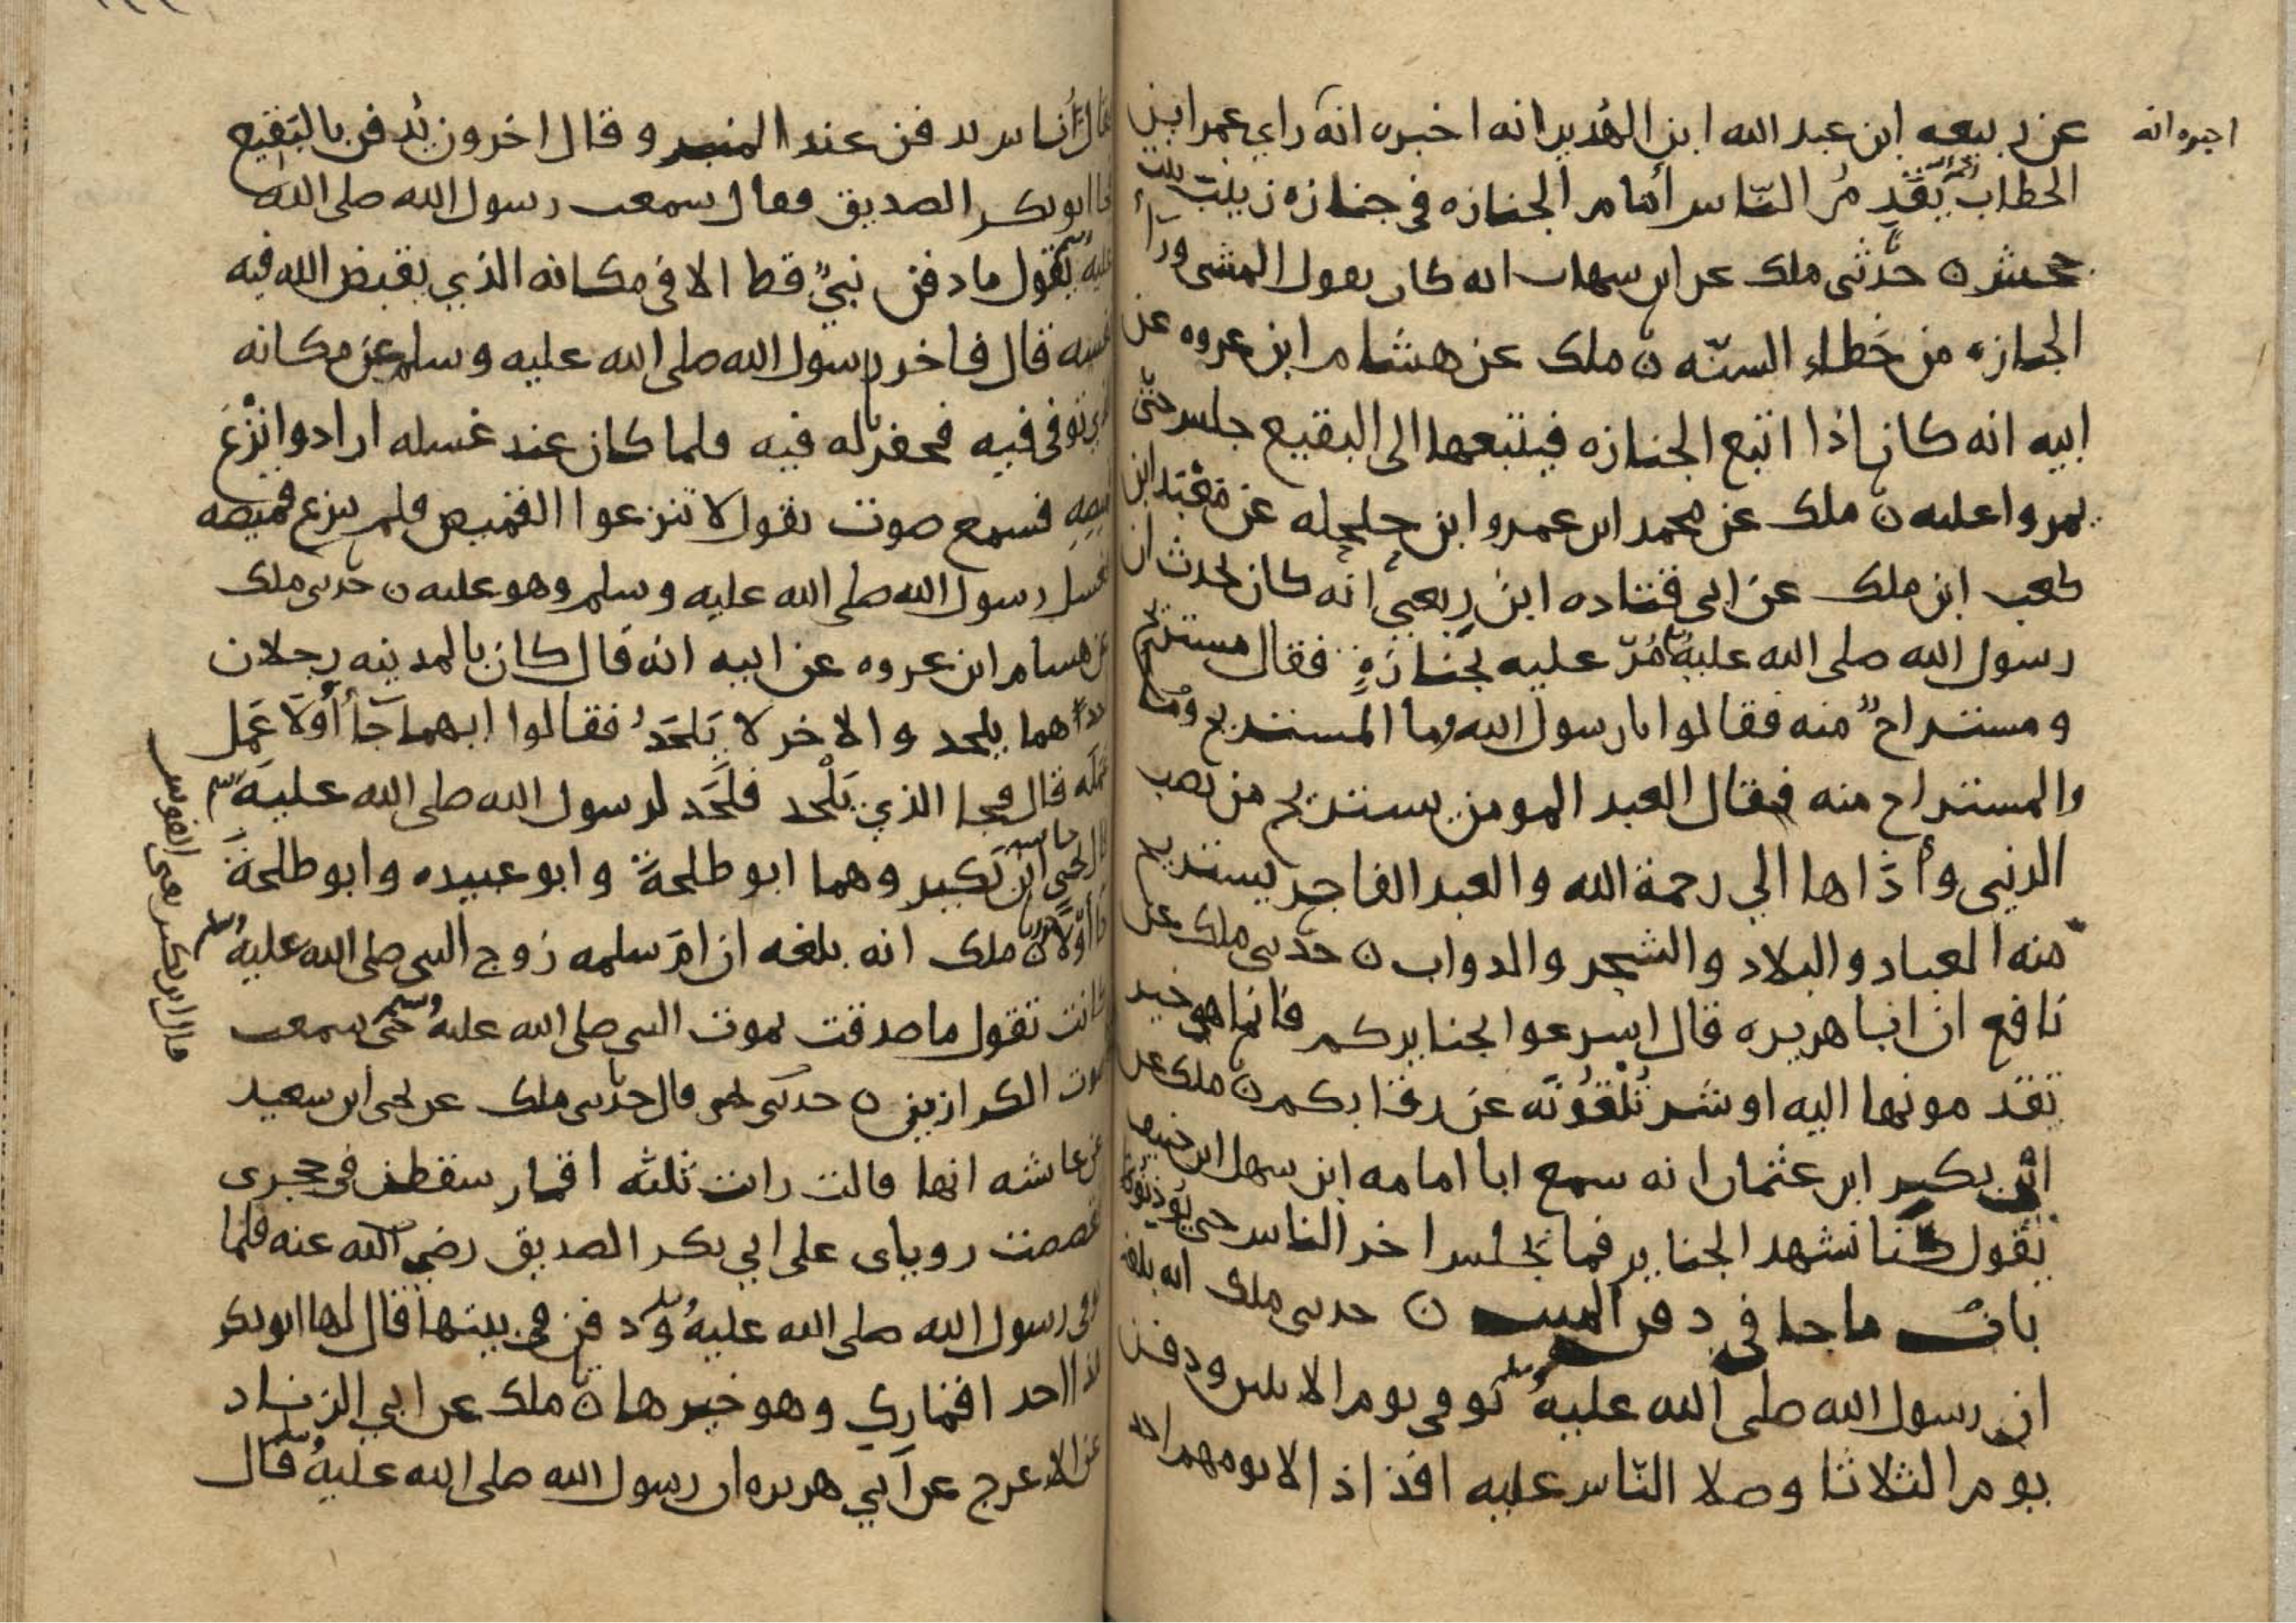 عن ربيعه ابن عبد الله ابن الهُدير انه اخبره انه راي عمر ابن
اخبره انه
الخطاب يَقَدِمُ الناس أمام الجنازه في جنازه زينب بنت
جحش ن حدَّثني ملك عن ابن سهاب انه كان يقول المشي ورآ
الجنازه من خَطاء السنّه ن ملك عن هشام ابن عروه عن
ابيه انه كان اذا اتبع الجنازه فيتبعها الى البقيع جلس حتى
يمروا عليه ن ملك عن محمد ابن عمرو ابن حلحله عن مَعْبَد ابن
كعب ابن ملك عن ابي قتاده ابن رِبعيّ انه كان يحدث ان
رسول الله صلى الله عليه مُرّ عليه بجنازةٍ فقال مستريح
ومستراحٌ منه فقالوا يارسول الله وما المستريح وما
والمستراح منه فقال العبد المومن يستريح من نصب
الدنيى وأذَاها الي رحمة الله والعبد الفاجر يستريح
منه العباد والبلاد والشجر والدواب ن حدّثني ملك عن
نافع ان ابا هريره قال اسرعوا بجنايزكم فانما هو خير
تقدمونها اليه او شر تُلْقُونَه عن رقابكم ن ملك عن
ابي بكير ابن عثمان انه سمع ابا امامه ابن سهل ابن حنيف
يقول كنا نشهد الجنايز فما يجلس اخر الناس حتى يوذنوا
بابُ ما جا في دفن الميت ن حدثني ملك انه بلغه
ان رسول الله صلى الله عليه وسلم توفي يوم الاثنين ودفن
يوم الثلاثا وصلا الناس عليه افذاذ الا يومهم احد
فقال أناس يدفن عند المنبر وقال اخرون يُدفن بالبقيع
فجا ابو بكر الصديق فقال سمعت رسول الله صلى الله
عليه وسلم يقول ما دفن نبيٌ قط الا في مكانه الذي يقبض الله فيه
نفسه قال فاخر رسول الله صلى الله عليه وسلم عن مكانه
الذي توفى فيه فحفر له فيه فلما كان عند غسله ارادوا نزْعَ
قميصِهِ فسمع صوت يقول لا تنزعوا القميص فلم ينزع قميصه
فغسل رسول الله صلى الله عليه وسلم وهو عليه ن حدثني ملك
عن هسام ابن عروه عن ابيه انه قال كان بالمدينه رجلان
احدهما يلحد والاخر لا يَلحَدُ فقالوا ايهما جآ أوّلا عَمل
عَمَلَه قال فجا الذي يَلْحد فلَحَد لرسول الله صلى الله عليه وسلم
قال يحيى ابن بَكير وهما ابو طلحة وابو عبيده وابو طلحة
جا أوّلا ن ملك انه بلغه ان ام سلمه زوج النبي صلى الله عليه وسلم
كانت تقول ما صدقت بموت النبي صلى الله عليه وسلم حتى سمعت
صوت الكرازين ن حدثني يحيى قال حدّثني ملك عن يحيى ابن سعيد
عن عاشه انها قالت رات ثلثه اقمار سقطن في حجرى
فقصصت روياى على ابي بكر الصديق رضي الله عنه فلما
توفى رسول الله صلى الله عليه وسلم ودفن في بيتها قال لها ابو بكر
هذا احد اقمارك وهو خيرها ن ملك عن ابي الزناد
عن الاعرج عن ابي هريره ان رسول الله صلى الله عليه وسلم قال
قال ابن بكير يعني الفوس